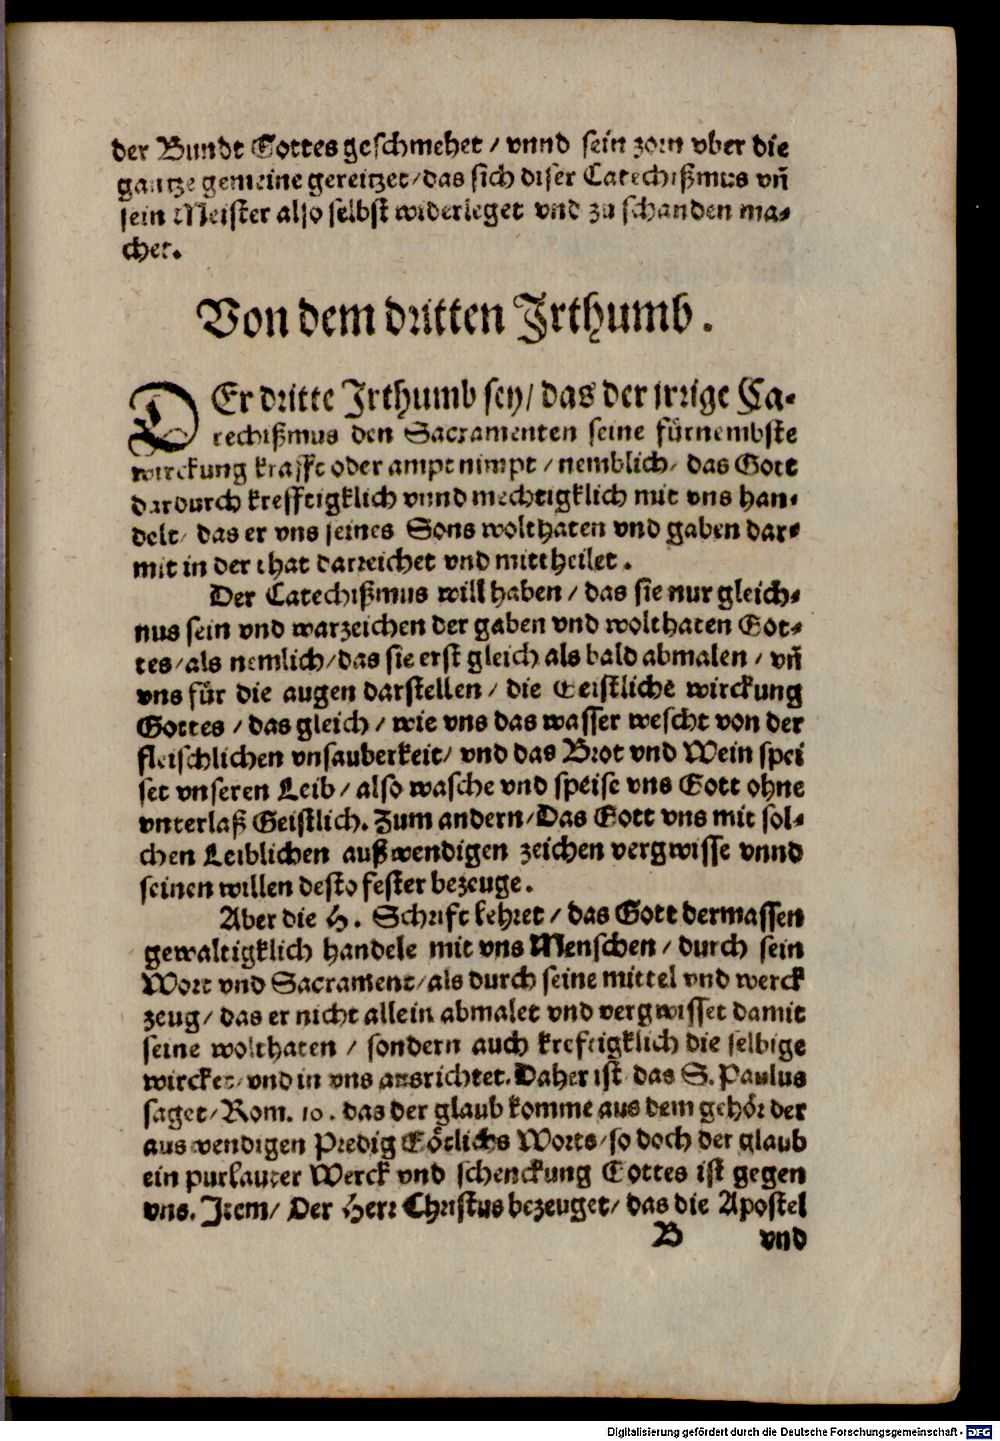 der Bundt Gottes geschmehet / vnnd sein zorn vber die
gantze gemeine gereitzet / das sich diser Catechißmus vñ
sein Meister also selbst widerleget vnd zu schanden ma-
chet.
Von dem dritten Irthumb.
DEr dritte Irthumb sey / das der irrige Ca-
techißmus den Sacramenten seine fürnembste
wirckung krafft oder ampt nimpt / nemblich / das Gott
dardurch krefftigklich vnnd mechtigklich mit vns han-
delt / das er vns seines Sons wolthaten vnd gaben dar-
mit in der that darreichet vnd mittheilet.
Der Catechißmus will haben / das sie nur gleich-
nus sein vnd warzeichen der gaben vnd wolthaten Got-
tes / als nemlich / das sie erst gleich als bald abmalen / vñ
vns für die augen darstellen / die Geistliche wirckung
Gottes / das gleich / wie vns das wasser wescht von der
fleischlichen vnsauberkeit / vnd das Brot vnd Wein spei
set vnseren Leib / also wasche vnd speise vns Gott ohne
vnterlaß Geistlich. Zum andern / Das Gott vns mit sol-
chen Leiblichen außwendigen zeichen vergwisse vnnd
seinen willen desto fester bezeuge.
Aber die H. Schrift lehret / das Gott dermassen
gewaltigklich handele mit vns Menschen / durch sein
Wort vnd Sacrament / als durch seine mittel vnd werck
zeug / das er nicht allein abmalet vnd vergwisset damit
seine wolthaten / sondern auch kreftigklich die selbige
wircket / vnd in vns ausrichtet. Daher ist das S. Paulus
saget / Rom. 10. das der glaub komme aus dem gehör der
auswendigen Predig Götlichs Worts / so doch der glaub
ein purlauter Werck vnd schenckung Gottes ist gegen
vns. Item / Der Herr Christus bezeuget / das die Apostel
B vnd
Digitalisierung gefördert durch die Deutsche Forschungsgemeinschaft - DFG